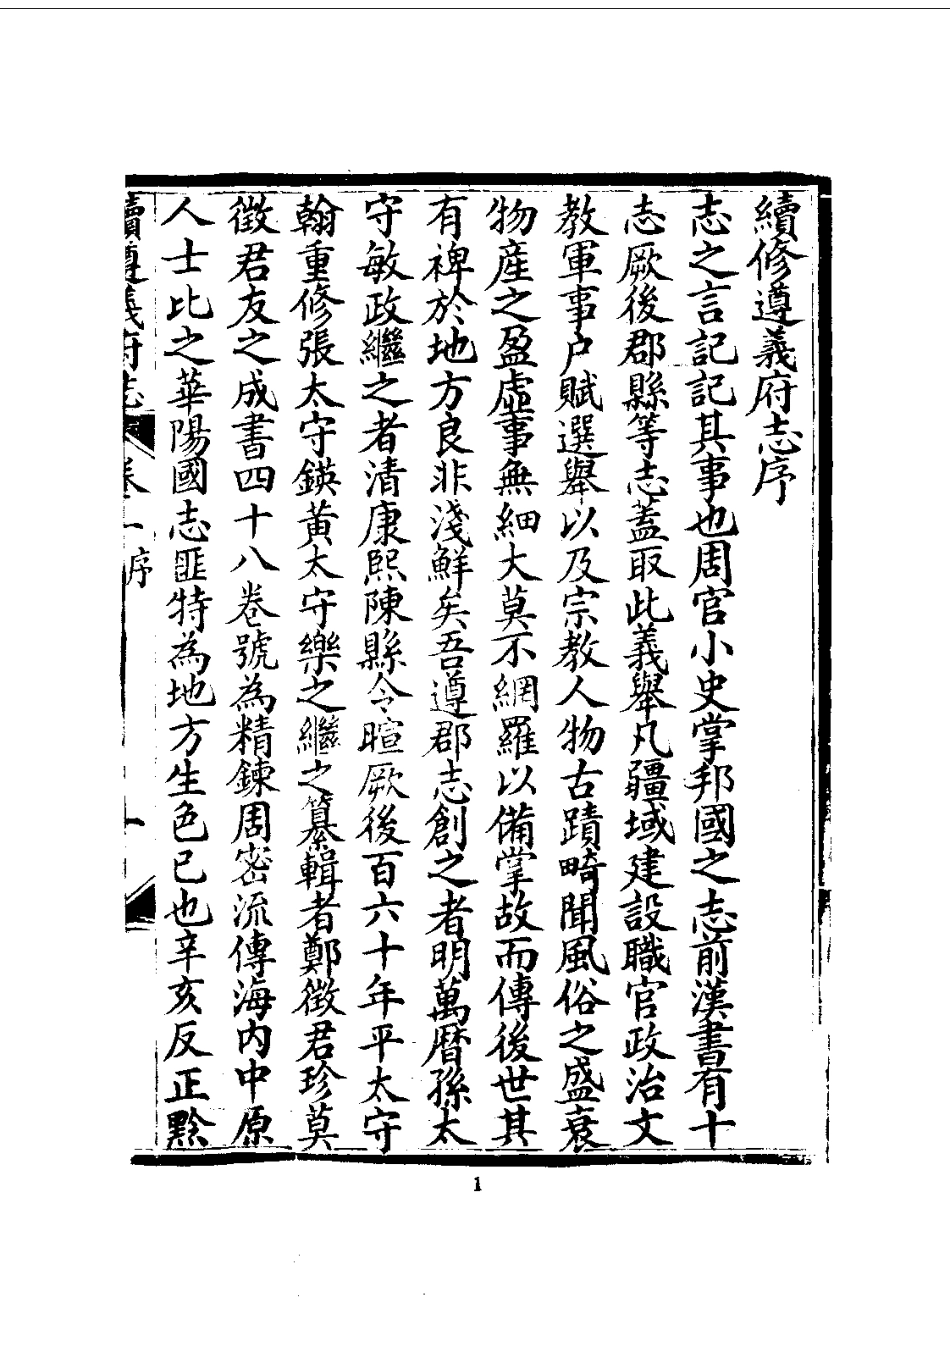 續修遵義府志序
志之言記記其事也周官小史掌邦國之志前漢書有十
志厥後郡縣等志蓋取此義舉凡疆域建設職官政治文
教軍事户賦選舉以及宗教人物古蹟畸聞風俗之盛衰
物產之盈虛事無細大莫不網羅以備掌故而傳後世其
有裨於地方良非淺鮮矣吾遵郡志創之者明萬曆孫太
守敏政繼之者清康熙陳縣令暄厥後百六十年平太守
翰重修張太守鍈黃太守樂之繼之纂輯者鄭徵君珍莫
徵君友之成書四十八卷號為精鍊周密流傳海內中原
人士比之華陽國志匪特為地方生色已也辛亥反正黔
續遵義府志 卷一序 一
1